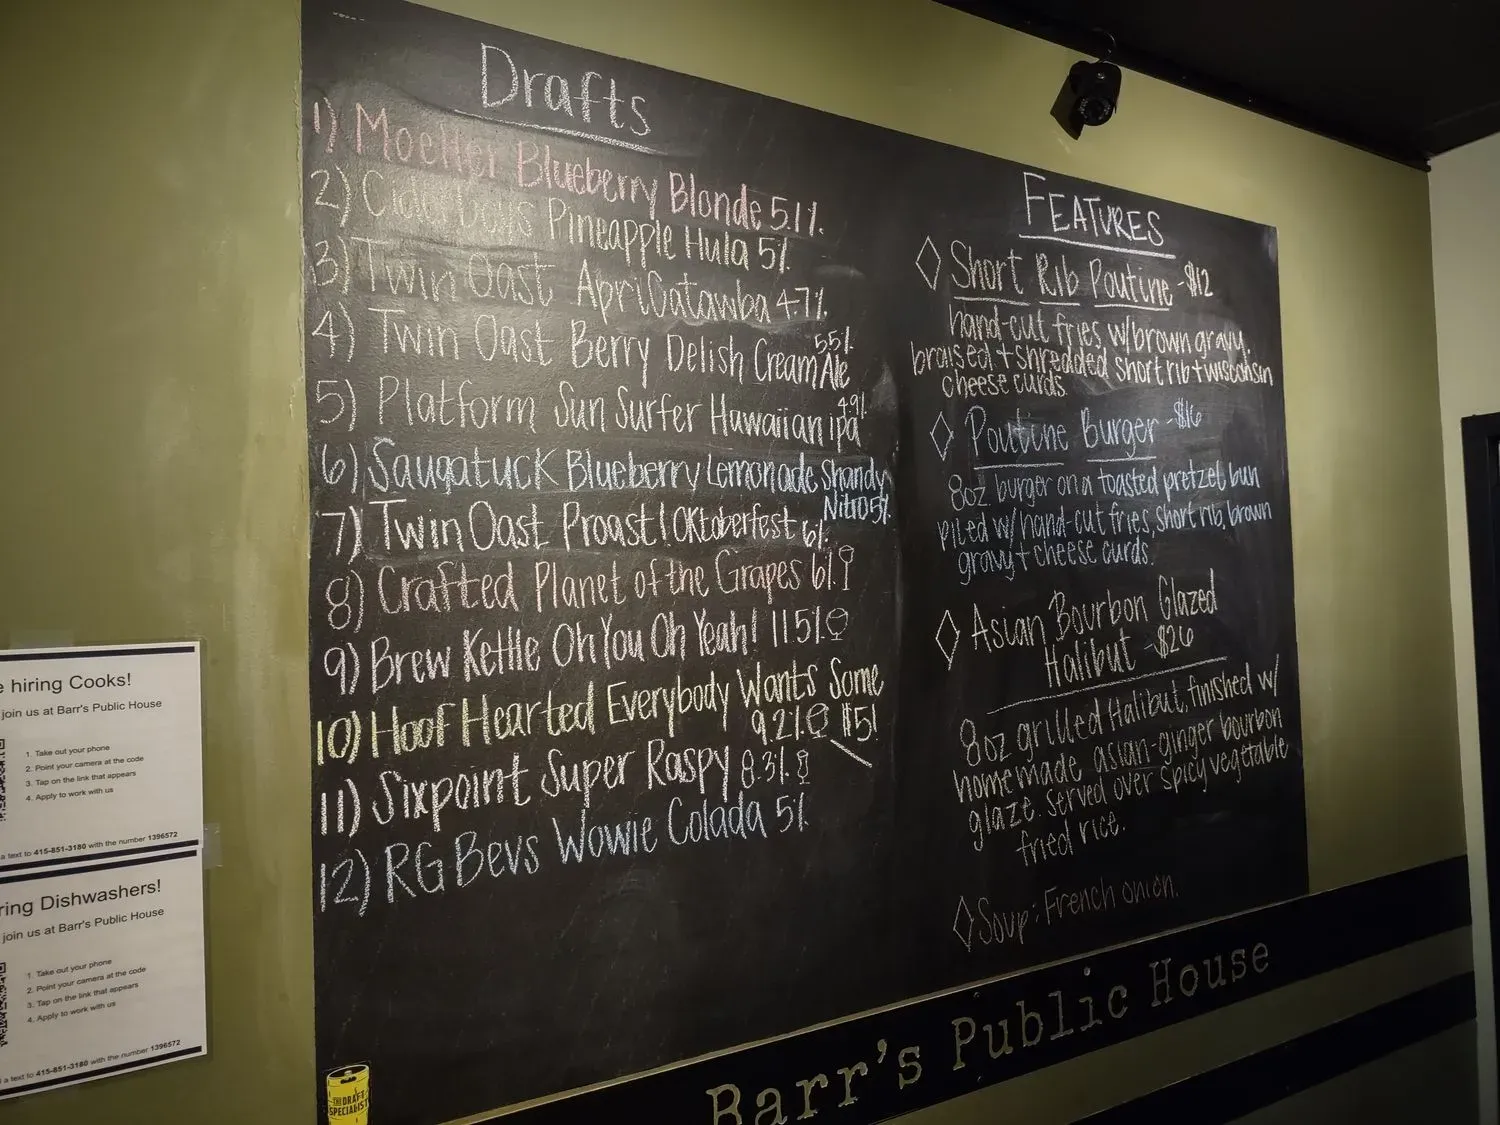 Drafts
1) Moeller Blueberry Blonde 5.1%
2) Ciderboys Pineapple Hula 5%
3) Twin Oast ApriCatawba 4.7%
4) Twin Oast Berry Delish Cream Ale 5.5%
5) Platform Sun Surfer Hawaiian ipa 4.9%
6) Saugatuck Blueberry Lemonade Shandy
Nitro 5%
7) Twin Oast Proast! Oktoberfest 6%
8) Crafted Planet of the Grapes 6%
9) Brew Kettle Oh You Oh Yeah! 11.5%
10) Hoof Hearted Everybody Wants Some
9.2% $5!
11) Sixpoint Super Raspy 8.3%
12) RG Bevs Wowie Colada 5%
FEATURES
Short Rib Poutine - $12
hand-cut fries, w/brown gravy,
braised + shredded short rib + wisconsin
cheese curds.
Poutine Burger - $16
8oz burger on a toasted pretzel bun
piled w/ hand-cut fries, short rib, brown
gravy + cheese curds.
Asian Bourbon Glazed
Halibut - $26
8oz grilled Halibut, finished w/
homemade asian-ginger bourbon
glaze. served over spicy vegetable
fried rice.
Soup: French onion.
Barr's Public House
THE DRAFT
SPECIALIST
hiring Cooks!
join us at Barr's Public House
1. Take out your phone
2. Point your camera at the code
3. Tap on the link that appears
4. Apply to work with us
a text to 415-851-3180 with the number 1396572
ring Dishwashers!
join us at Barr's Public House
1. Take out your phone
2. Point your camera at the code
3. Tap on the link that appears
4. Apply to work with us
a text to 415-851-3180 with the number 1396572